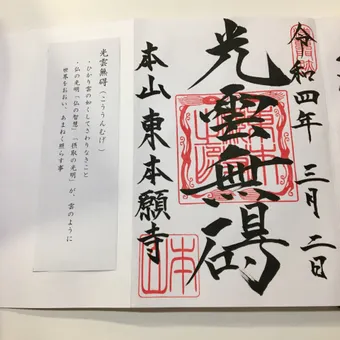 令和四年 三月二日
光雲無碍
本山 東本願寺
光雲無碍(こううんむげ)
・ひかり雲の如くしてさわりなきこと
・仏の光明「仏の智慧」「摂取の光明」が、雲のように
世界をおおい、あまねく照らす事
本山